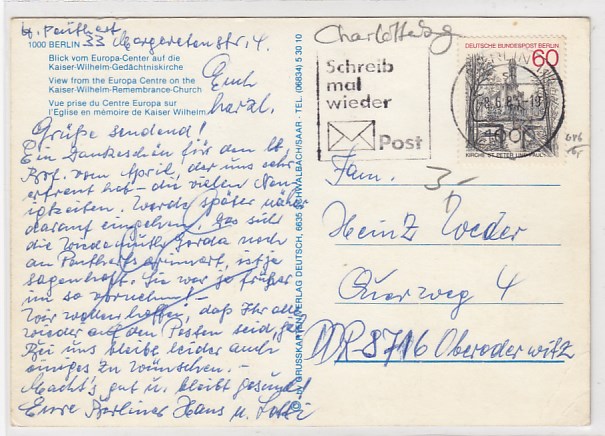 1000 BERLIN 33 Margaretenstr. 4.
Blick vom Europa-Center auf die
Kaiser-Wilhelm-Gedächtniskirche
View from the Europa Centre on the
Kaiser-Wilhelm-Remembrance-Church
Vue prise du Centre Europa sur
l'Eglise en mémoire de Kaiser Wilhelm
Euch
herzl.
Grüße sendend!
Ein Dankeschön für den lb.
Brf. vom April, der uns sehr
erfreut hat – die vielen Neu-
igkeiten. Werde später näher
darauf eingehen. Das sich
die Gerda noch
an Pautherts erinnert, ist ja
sagenhaft. Sie war ja früher
im so vornehm! –
Wir wollen hoffen, daß Ihr alle
wieder auf dem Posten seid,
Bei uns bleibt leider auch
einiges zu wünschen. –
Macht's gut u. bleibt gesund!
Eure Berliner Hans u.
by GRUSSKARTEN-VERLAG DEUTSCH, 6635 SCHWALBACH/SAAR - TEL. (06834) 5 30 10
Charlottenbg
Schreib
mal
wieder
Post
DEUTSCHE BUNDESPOST BERLIN
60
BERLIN
1000
KIRCHE ST. PETER UND PAUL
3,-
Fam.
Heinz Roeder
Querweg 4
DDR-8716 Oberoderwitz